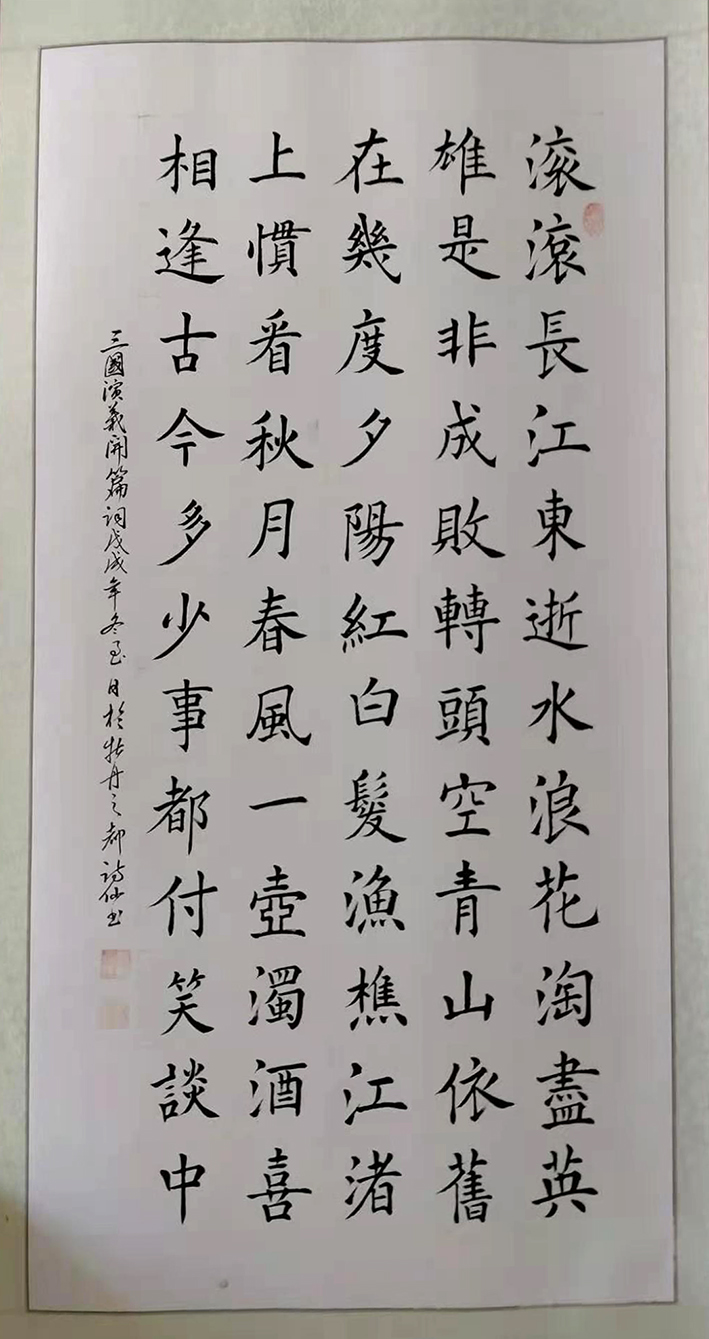 滚滾長江東逝水浪花淘盡英
雄是非成敗轉頭空青山依舊
在幾度夕陽紅白髮漁樵江渚
上慣看秋月春風一壺濁酒喜
相逢古今多少事都付笑談中
三國演義開篇詞戊戌年冬至日於牡丹之都詩仙書